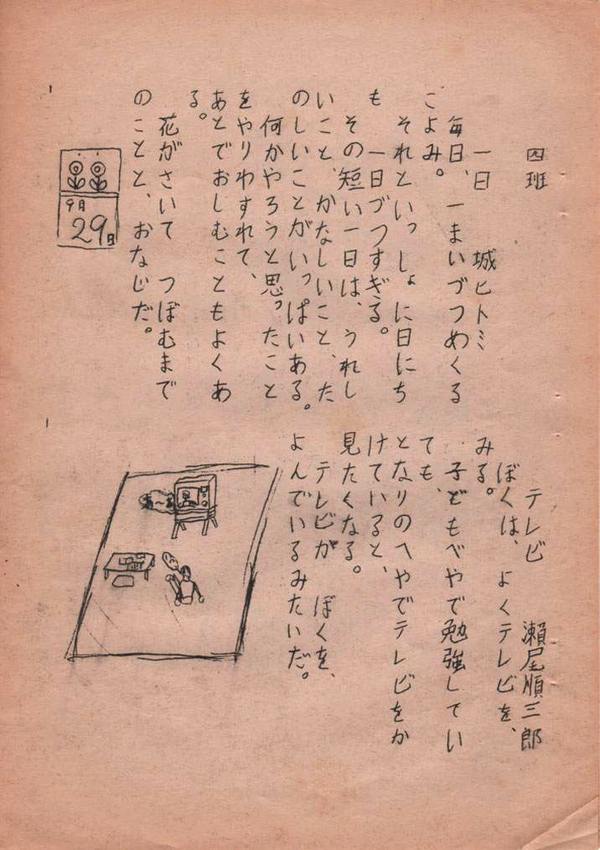 四班
一日　城ヒトミ
毎日、一まいづつめくる
こよみ。
それといっしょに日にち
も　一日づつすぎる。
その短い一日は、うれし
いこと、かなしいこと、た
のしいことがいっぱいある。
何かやろうと思ったこと
をやりわすれて、
あとでおしむこともよくあ
る。
花がさいて　つぼむまで
のことと、おなじだ。
9月
29日
テレビ　瀬尾順三郎
ぼくは、よくテレビを、
みる。
子どもべやで勉強してい
ても、
となりのへやでテレビをか
けていると、
見たくなる。
テレビが　ぼくを、
よんでいるみたいだ。